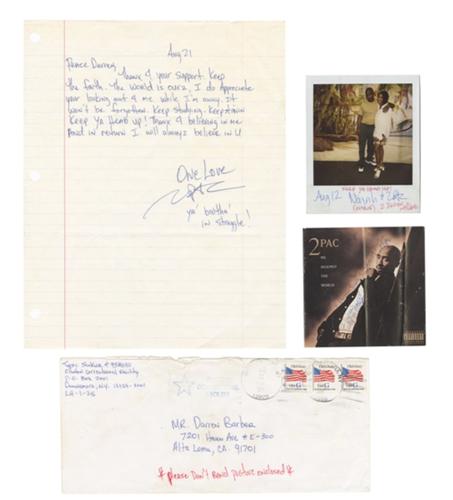 Aug 21
Peace Darren,
Thanx 4 your support. Keep
the faith. The world is ours. I do appreciate
your looking out 4 me while I'm away. It
won't be forgotten. Keep studying. Keep strong
Keep Ya Head up! Thanx 4 believing in me
and in return I will always believe in U
One Love
ya' brotha'
in struggle!
Aug 12
2PAC
ME
AGAINST
THE
WORLD
Clinton Correctional Facility
P.O. Box 2001
Dannemora, N.Y. 12929-2001
MR. Darren Barbea
7201 Haven Ave # E-300
Alta Loma, CA. 91701
* please Don't Bend picture enclosed *